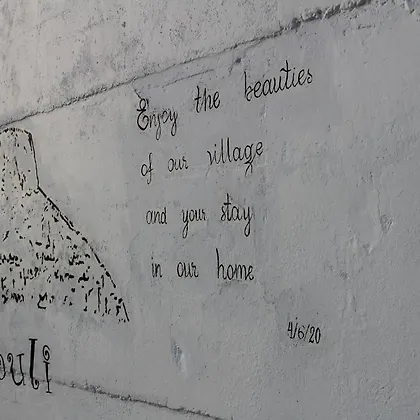 Enjoy the beauties
of our village
and your stay
in our home
4/6/20
ouli